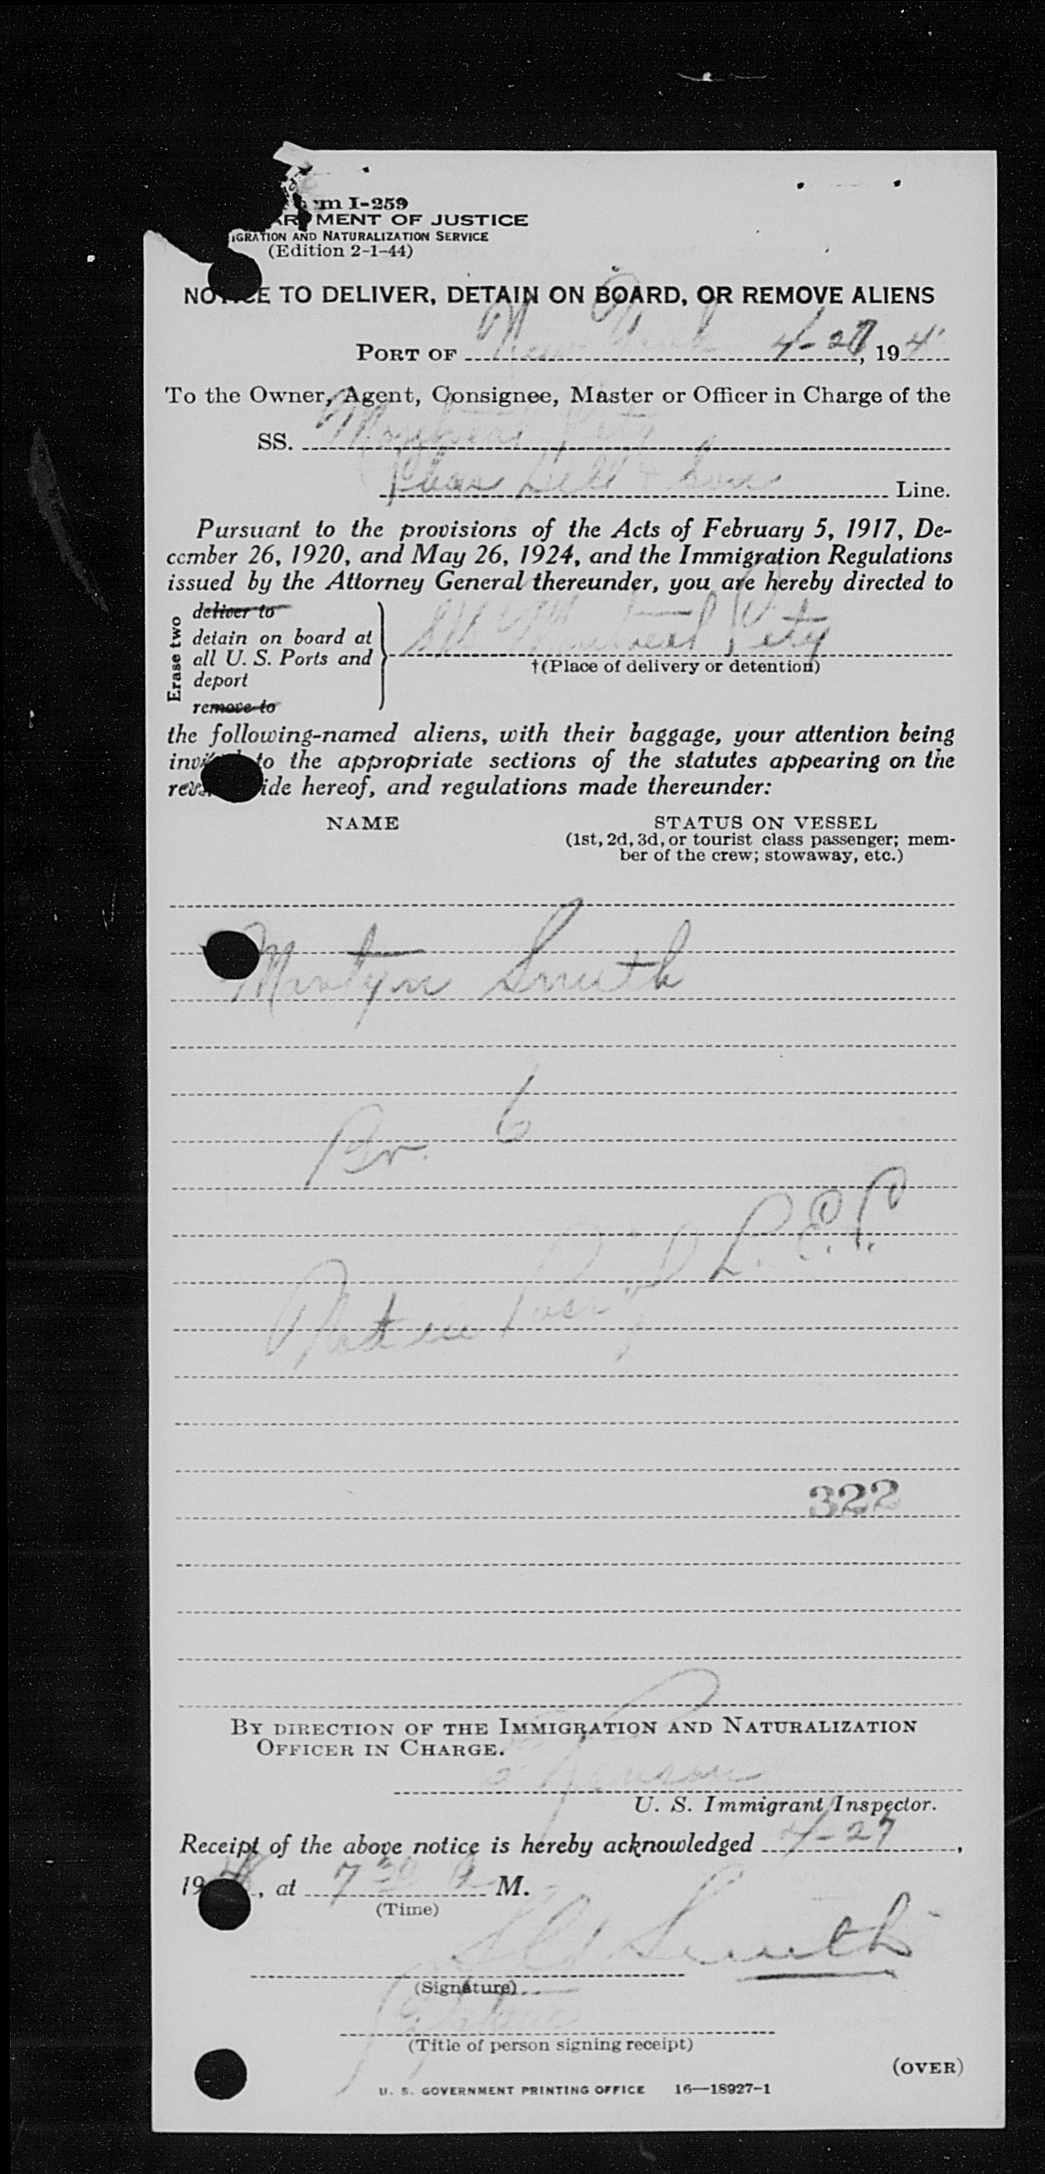 m I-259
MENT OF JUSTICE
IGRATION AND NATURALIZATION SERVICE
(Edition 2-1-44)
NO CE TO DELIVER, DETAIN ON BOARD, OR REMOVE ALIENS
PORT OF New York 4-27, 194
To the Owner, Agent, Consignee, Master or Officer in Charge of the
SS. Montreal City
Chas Hill & Sons Line.
Pursuant to the provisions of the Acts of February 5, 1917, De-
cember 26, 1920, and May 26, 1924, and the Immigration Regulations
issued by the Attorney General thereunder, you are hereby directed to
Erase two
deliver to
detain on board at
all U. S. Ports and
deport
remove to
SS Montreal City
†(Place of delivery or detention)
the following-named aliens, with their baggage, your attention being
to the appropriate sections of the statutes appearing on the
ide hereof, and regulations made thereunder:
NAME STATUS ON VESSEL
(1st, 2d, 3d, or tourist class passenger; mem-
ber of the crew; stowaway, etc.)
Martyn Smith
Br. 6
322
BY DIRECTION OF THE IMMIGRATION AND NATURALIZATION
OFFICER IN CHARGE.
U. S. Immigrant Inspector.
Receipt of the above notice is hereby acknowledged 4-27,
19 , at 7 30 A M.
(Time)
Smith
(Signature)
(Title of person signing receipt)
(OVER)
U. S. GOVERNMENT PRINTING OFFICE 16—18927-1